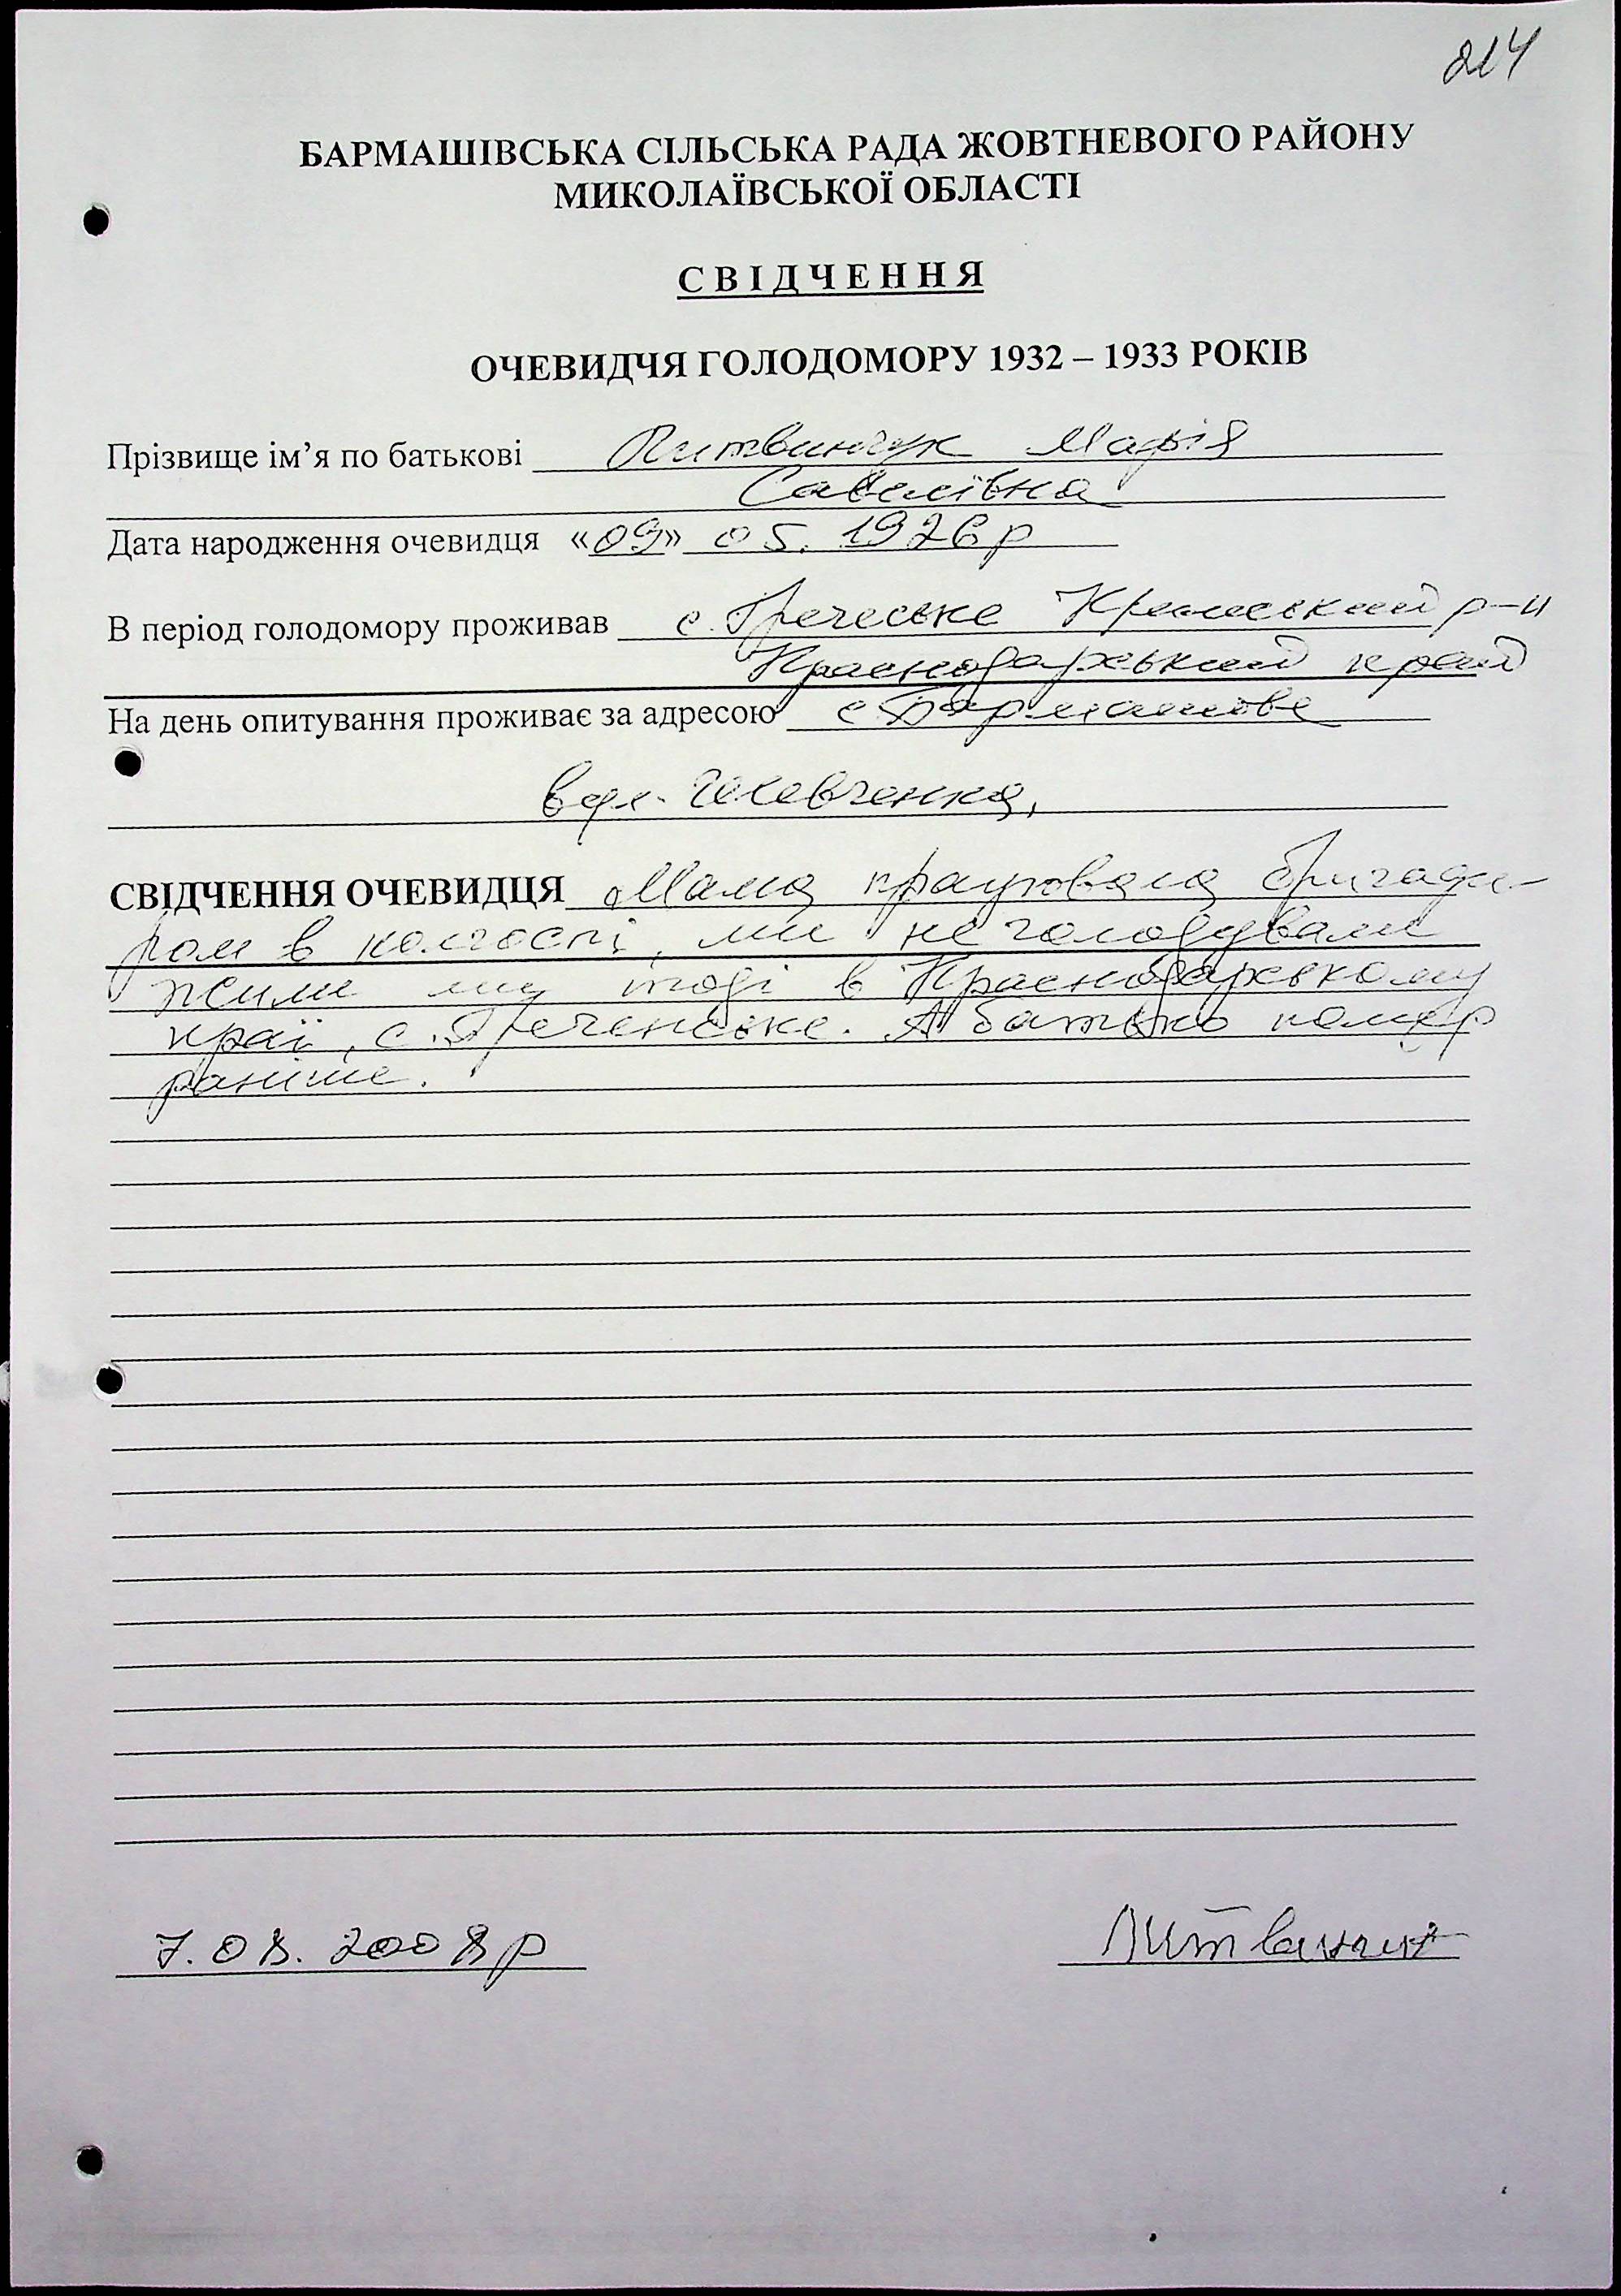 214
БАРМАШІВСЬКА СІЛЬСЬКА РАДА ЖОВТНЕВОГО РАЙОНУ
МИКОЛАЇВСЬКОЇ ОБЛАСТІ
СВІДЧЕННЯ
ОЧЕВИДЧЯ ГОЛОДОМОРУ 1932 – 1933 РОКІВ
Прізвище ім’я по батькові Литвинчук Марія
Савеліївна
Дата народження очевидця «09» 05. 1926р
В період голодомору проживав с. Греческе Кримський р-н
Краснодарський край
На день опитування проживає за адресою с. Бармашове
вул. Шевченка,
СВІДЧЕННЯ ОЧЕВИДЦЯ Мама працювала бригади-
ром в колгоспі, ми не голодували
жили ми тоді в Краснодарському
краї, с. Греченське. А батько помер
раніше.
7.08.2008р Литвинчук